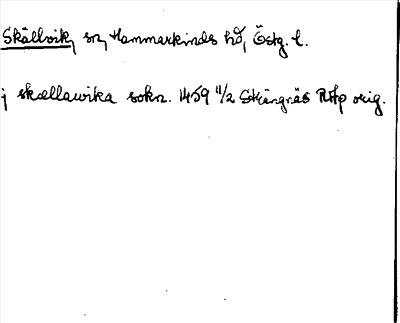 Skällvik, sn, Hammarkinds hd, Östg. l.
j skællawika sokn. 1459 11/2 Strängnäs RAp orig.